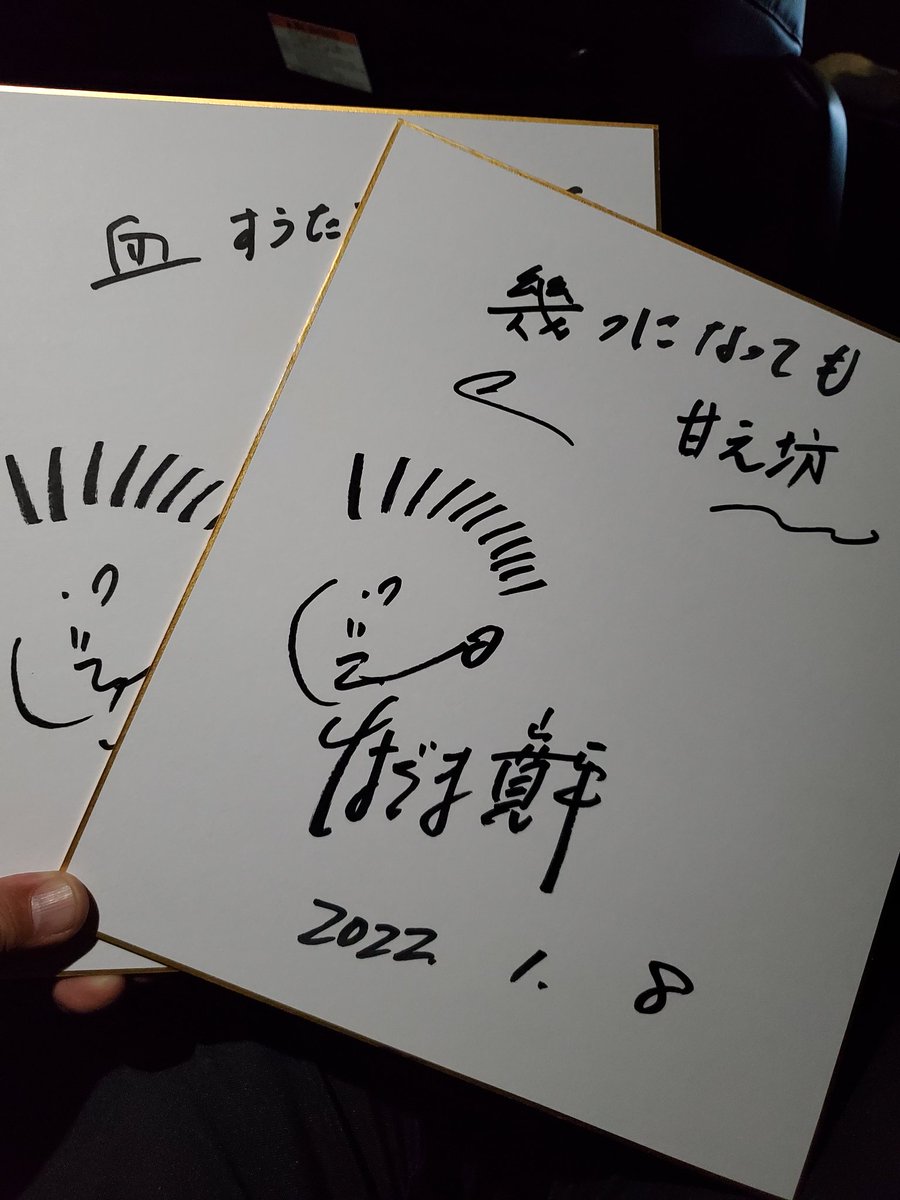 血 すうた
幾つになっても
甘え坊
はざま寛平
2022 1. 8